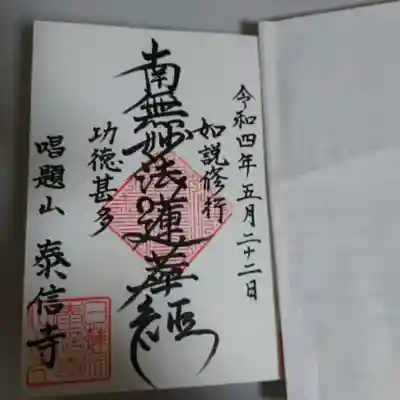 令和四年五月二十二日
如説修行
南無妙法蓮華経
功徳甚多
唱題山 泰信寺